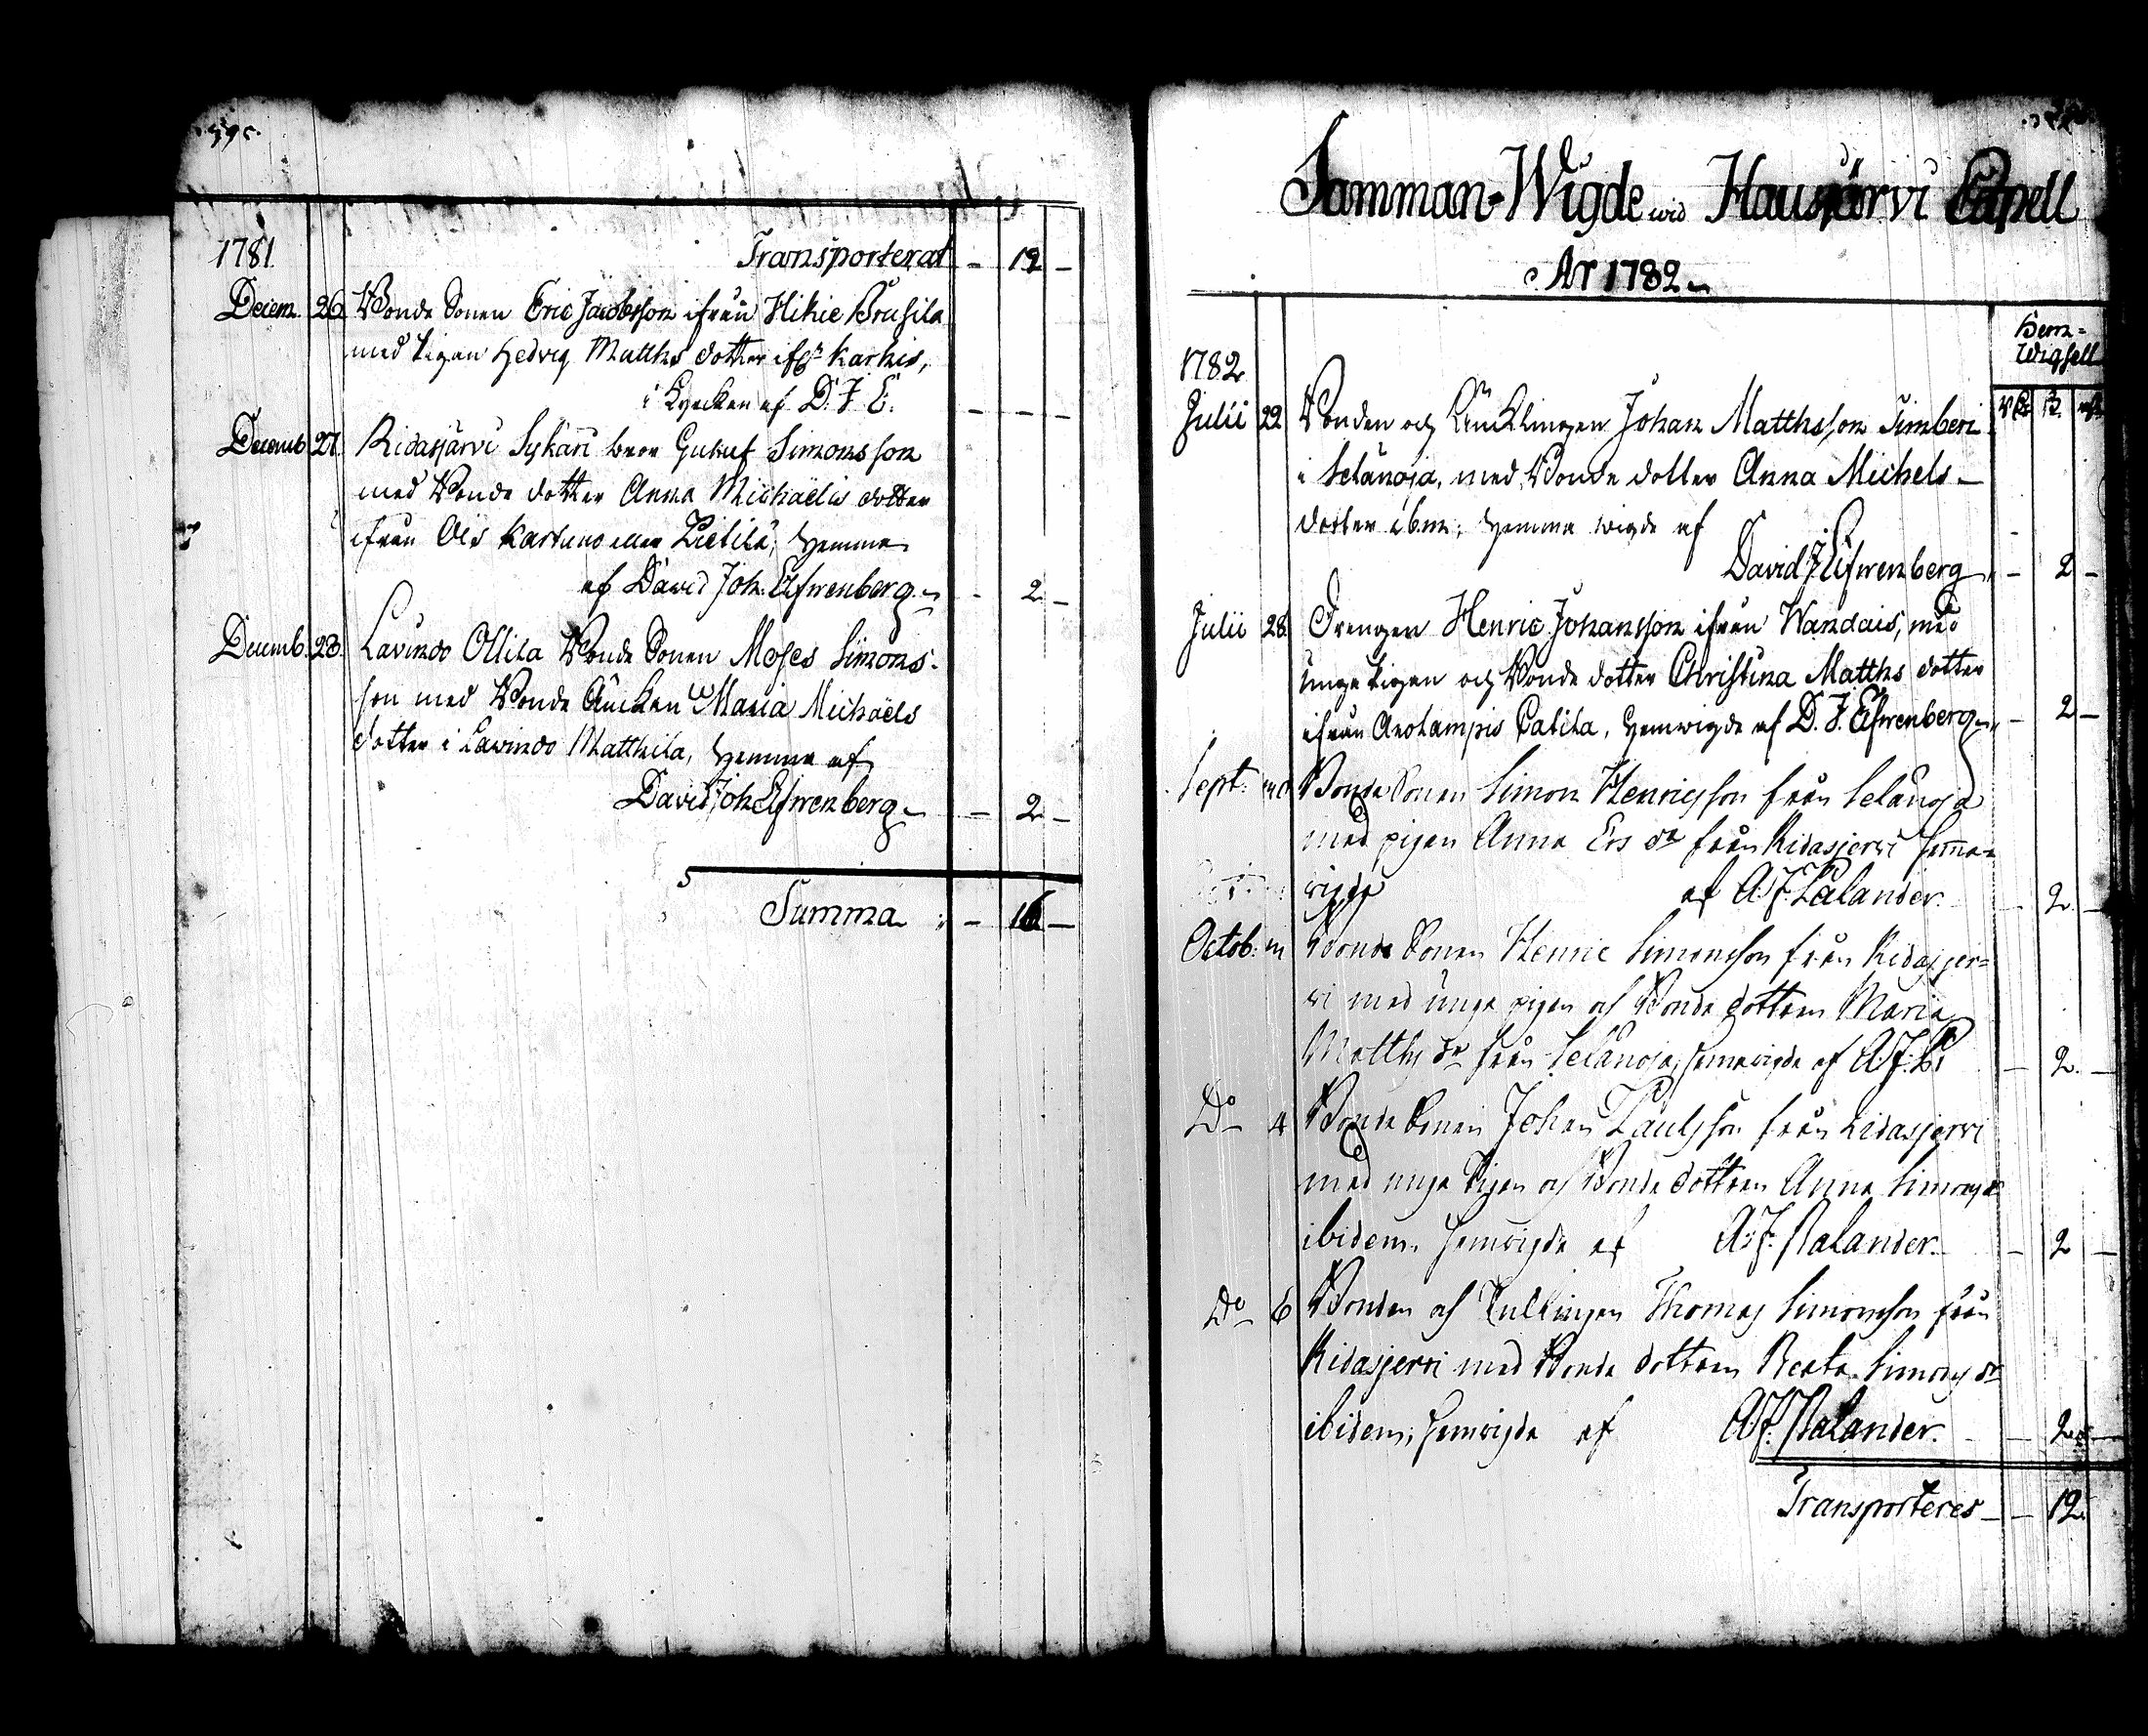 1781 Transporterat - 12 -
Decem. 26. Bonde Sonen Eric Jacobsson ifrån Hikie Brusila
med Pigan Hedvig Matths dotter ifrn Karhis,
i Kyrckan af D. J. E. - - -
Decemb. 27. Ridasjärvi Syskari bror Gustaf Simonsson
med Bonde dotter Anna Michaëlis dotter
ifrån Ois Kartuno eller Pietilä, hemma
af David Joh. Elfwenberg - 2 -
Decemb. 28. Lavindo Ollila Bonde Sonen Moses Simons-
son med Bonde Änckan Maria Michaëls
dotter i Lavindo Matthila, hemma af
David Joh Elfwenberg - 2 -
Summa - 16 -
Samman-Wigde wid Hausjärvi Capell
År 1782
Hem-
Wigsell
1782
Julii 22 Bonden och Änklingen Johan Matthsson Timberi
i Selänoja, med Bonde dotter Anna Michels-
dotter ibm; hemma wigde af
David J Elfwenberg - 2 -
Julii 28. Drengen Henric Johansson ifrån Wandais, med
unga Pigan och Bonde dotter Christina Matths dotter
ifrån Arolampis Palila, hemwigde af D. J. Elfwenberg - 2 -
Sept: Bonde Sonen Simon Henricsson från Selänoja
med pigan Anna Ers dr från Ridasjerwi hemma-
wigde af A. J. Palander. - 2 -
Octob: Bonde Sonen Henric Simonsson från Ridasjer=
wi med unga pigan och Bonde dottren Maria
Matths dr från Selänoja, hemawigde af A. J. P. - 2. -
Do 4 Bonde Sonen Johan Paulsson från Ridasjerwi
med unga Pigan och Bonde dottren Anna Simons dr
ibidem. hemwigde af A. J. Palander. - 2 -
Do 6 Bonden och Enklingen Thomas Simonsson från
Ridasjerwi med Bonde dottren Beata Simons dr
ibidem; hemwigde af A. J. Palander. - 2 -
Transporteres - - 12.